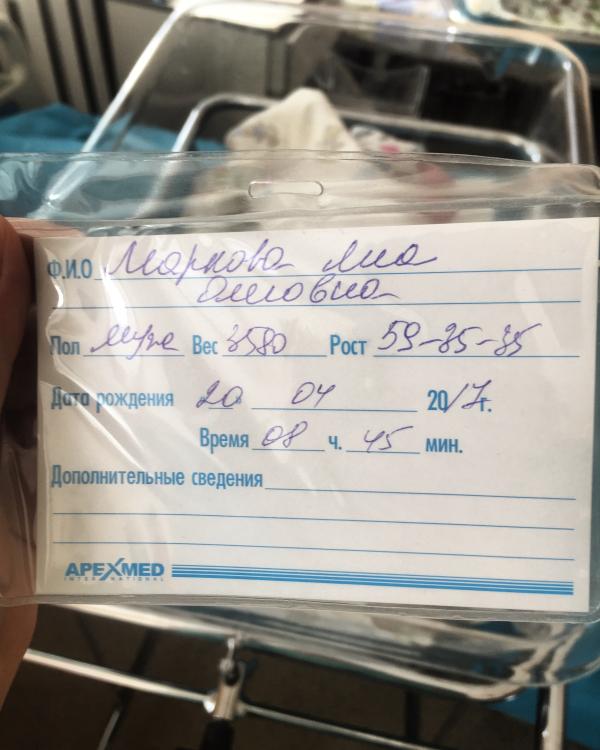 Ф.И.О Маркова Яна
Олеговна
Пол муж Вес 3580 Рост 59-35-35
Дата рождения 20 04 2017г.
Время 08 ч. 45 мин.
Дополнительные сведения
APEXMED
INTERNATIONAL